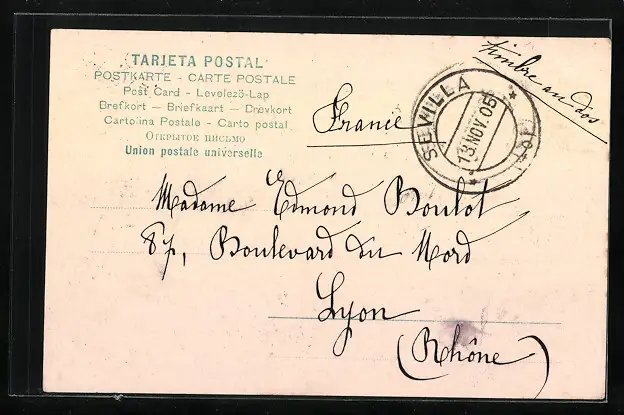 TARJETA POSTAL
POSTKARTE – CARTE POSTALE
Post Card – Levelező-Lap
Brefkort – Briefkaart – Brevkort
Cartolina Postale – Carto postal
ОТКРЫТОЕ ПИСЬМО
Union postale universelle
timbre au dos
France
SEVILLA
13 NOV. 05
Madame Edmond Boulot
87, Boulevard du Nord
Lyon
(Rhône)